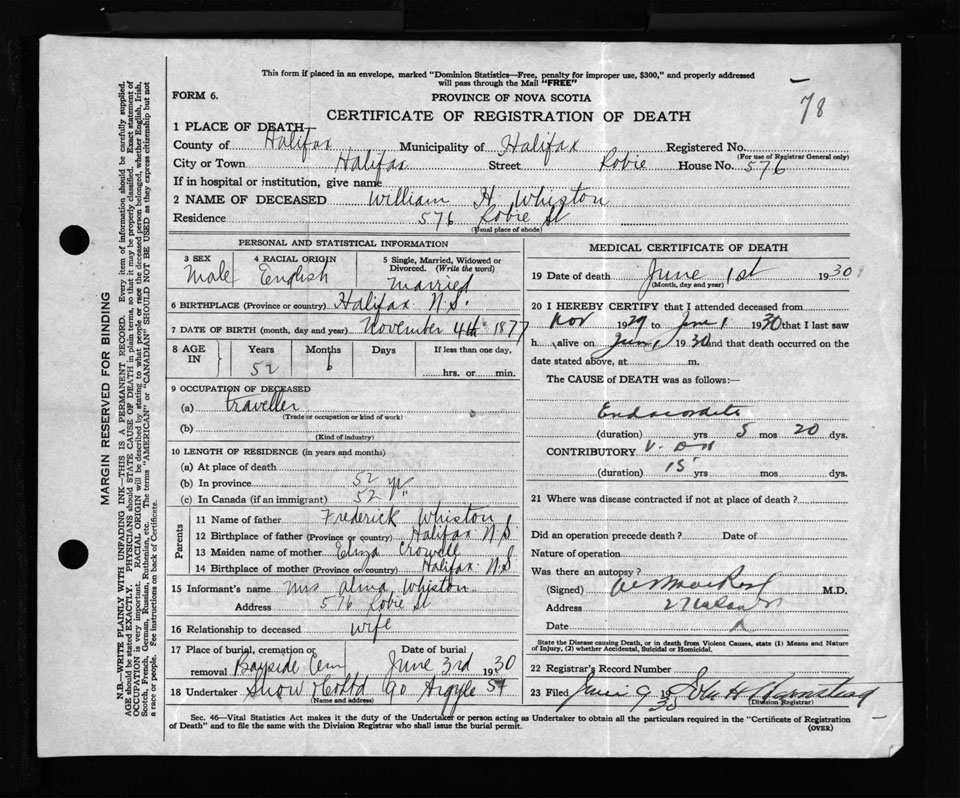 This form if placed in an envelope, marked "Dominion Statistics—Free, penalty for improper use, $300," and properly addressed
will pass through the Mail "FREE"
78
FORM 6.
PROVINCE OF NOVA SCOTIA
CERTIFICATE OF REGISTRATION OF DEATH
1 PLACE OF DEATH—
County of Halifax Municipality of Halifax Registered No.
(For use of Registrar General only)
City or Town Halifax Street Robie House No. 576
If in hospital or institution, give name
2 NAME OF DECEASED William H Whiston
Residence 576 Robie St
(Usual place of abode)
PERSONAL AND STATISTICAL INFORMATION
3 SEX 4 RACIAL ORIGIN 5 Single, Married, Widowed or
Divorced. (Write the word)
Male English married
6 BIRTHPLACE (Province or country) Halifax N.S.
7 DATE OF BIRTH (month, day and year) November 4th 1877
8 AGE IN Years Months Days If less than one day,
52 6 hrs. or min.
9 OCCUPATION OF DECEASED
(a) traveller
(Trade or occupation or kind of work)
(b)
(Kind of industry)
10 LENGTH OF RESIDENCE (in years and months)
(a) At place of death
(b) In province 52 yr
(c) In Canada (if an immigrant) 52 "
Parents
11 Name of father Frederick Whiston
12 Birthplace of father (Province or country) Halifax N.S
13 Maiden name of mother Eliza Crowell
14 Birthplace of mother (Province or country) Halifax N.S
15 Informant's name Mrs Alma Whiston
Address 576 Robie St
16 Relationship to deceased wife
17 Place of burial, cremation or removal Bayside Cem Date of burial June 3rd 1930
18 Undertaker Snow & Co Ltd 90 Argyle St
(Name and address)
MEDICAL CERTIFICATE OF DEATH
19 Date of death June 1st 1930
(Month, day and year)
20 I HEREBY CERTIFY that I attended deceased from
Nov 1929 to June 1 1930 that I last saw
h alive on June 1 1930 and that death occurred on the
date stated above, at m.
The CAUSE of DEATH was as follows:—
Endocarditis
(duration) yrs 5 mos 20 dys.
CONTRIBUTORY
(duration) 15 yrs mos dys.
21 Where was disease contracted if not at place of death?
Did an operation precede death? Date of
Nature of operation
Was there an autopsy?
(Signed) M.D.
Address
Date
State the Disease causing Death, or in death from Violent Causes, state (1) Means and Nature
of Injury, (2) whether Accidental, Suicidal or Homicidal.
22 Registrar's Record Number
23 Filed June 9 1930
(Division Registrar)
Sec. 46—Vital Statistics Act makes it the duty of the Undertaker or person acting as Undertaker to obtain all the particulars required in the "Certificate of Registration
of Death" and to file the same with the Division Registrar who shall issue the burial permit.
(OVER)
MARGIN RESERVED FOR BINDING
N.B.—WRITE PLAINLY WITH UNFADING INK—THIS IS A PERMANENT RECORD. Every item of information should be carefully supplied.
AGE should be stated EXACTLY. PHYSICIANS should STATE CAUSE OF DEATH in plain terms, so that it may be properly classified. Exact statement of
OCCUPATION is very important. RACIAL ORIGIN will be described by stating to what people or race the deceased person belonged, whether English, Irish,
Scotch, French, German, Russian, Ruthenian, etc. The terms "AMERICAN" or "CANADIAN" SHOULD NOT BE USED as they express citizenship but not
a race or people. See instructions on back of Certificate.